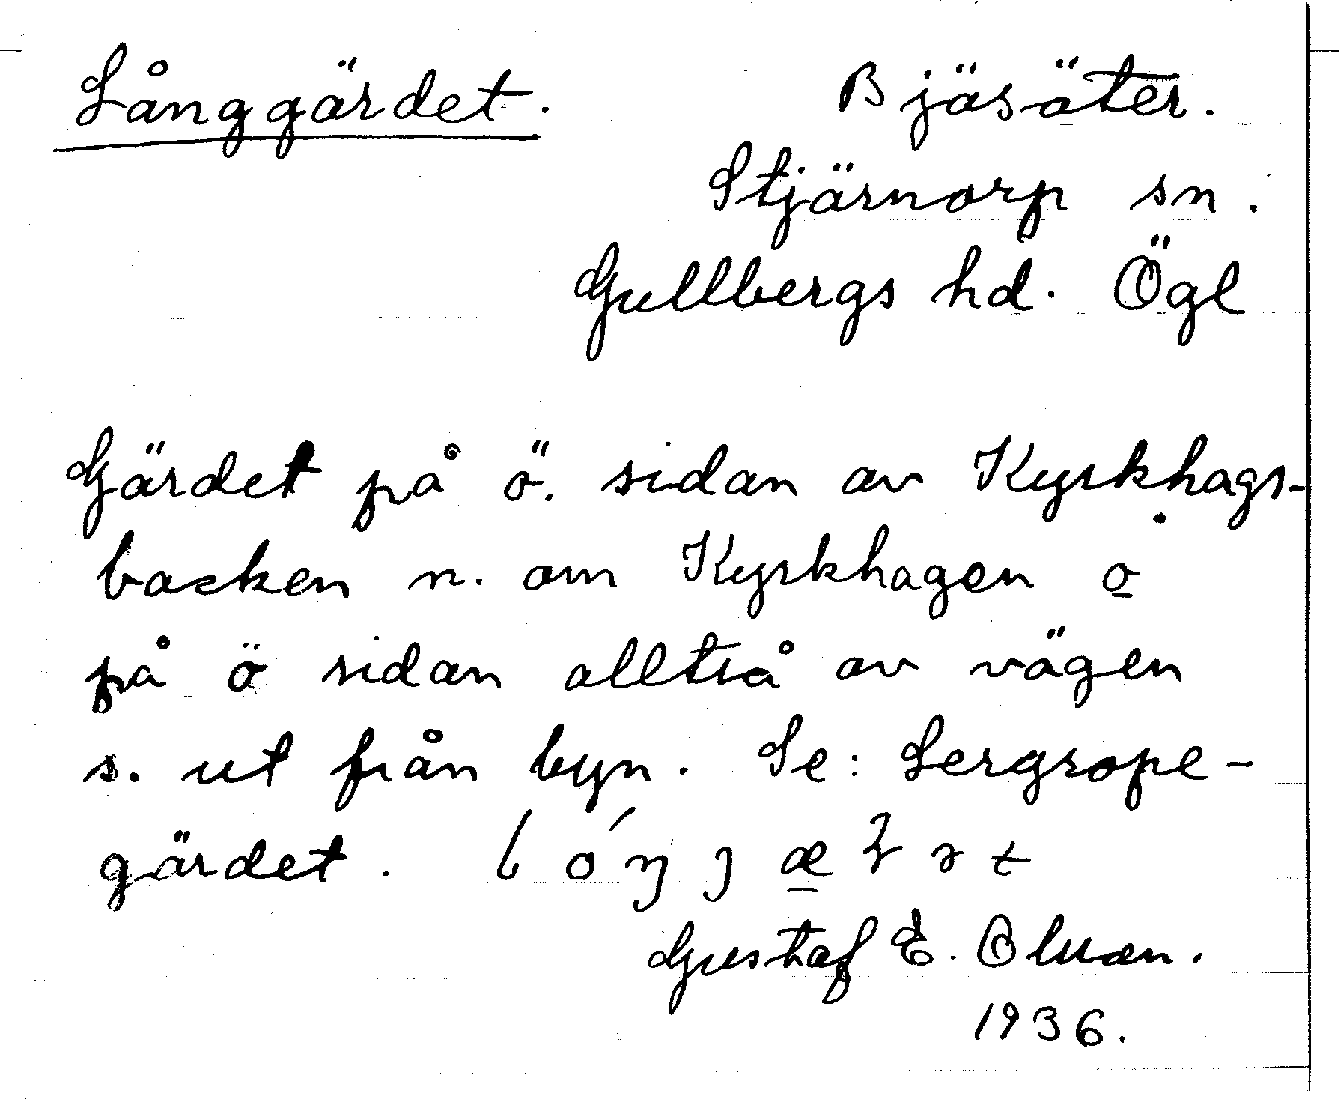 Långgärdet.
Bjäsäter.
Stjärnorp sn.
Gullbergs hd. Ögl
Gärdet på ö. sidan av Kyrkhags-
backen n. om Kyrkhagen o
på ö sidan alltså av vägen
s. ut från byn. Se: Lergrope-
gärdet.
Gustaf E.
1936.